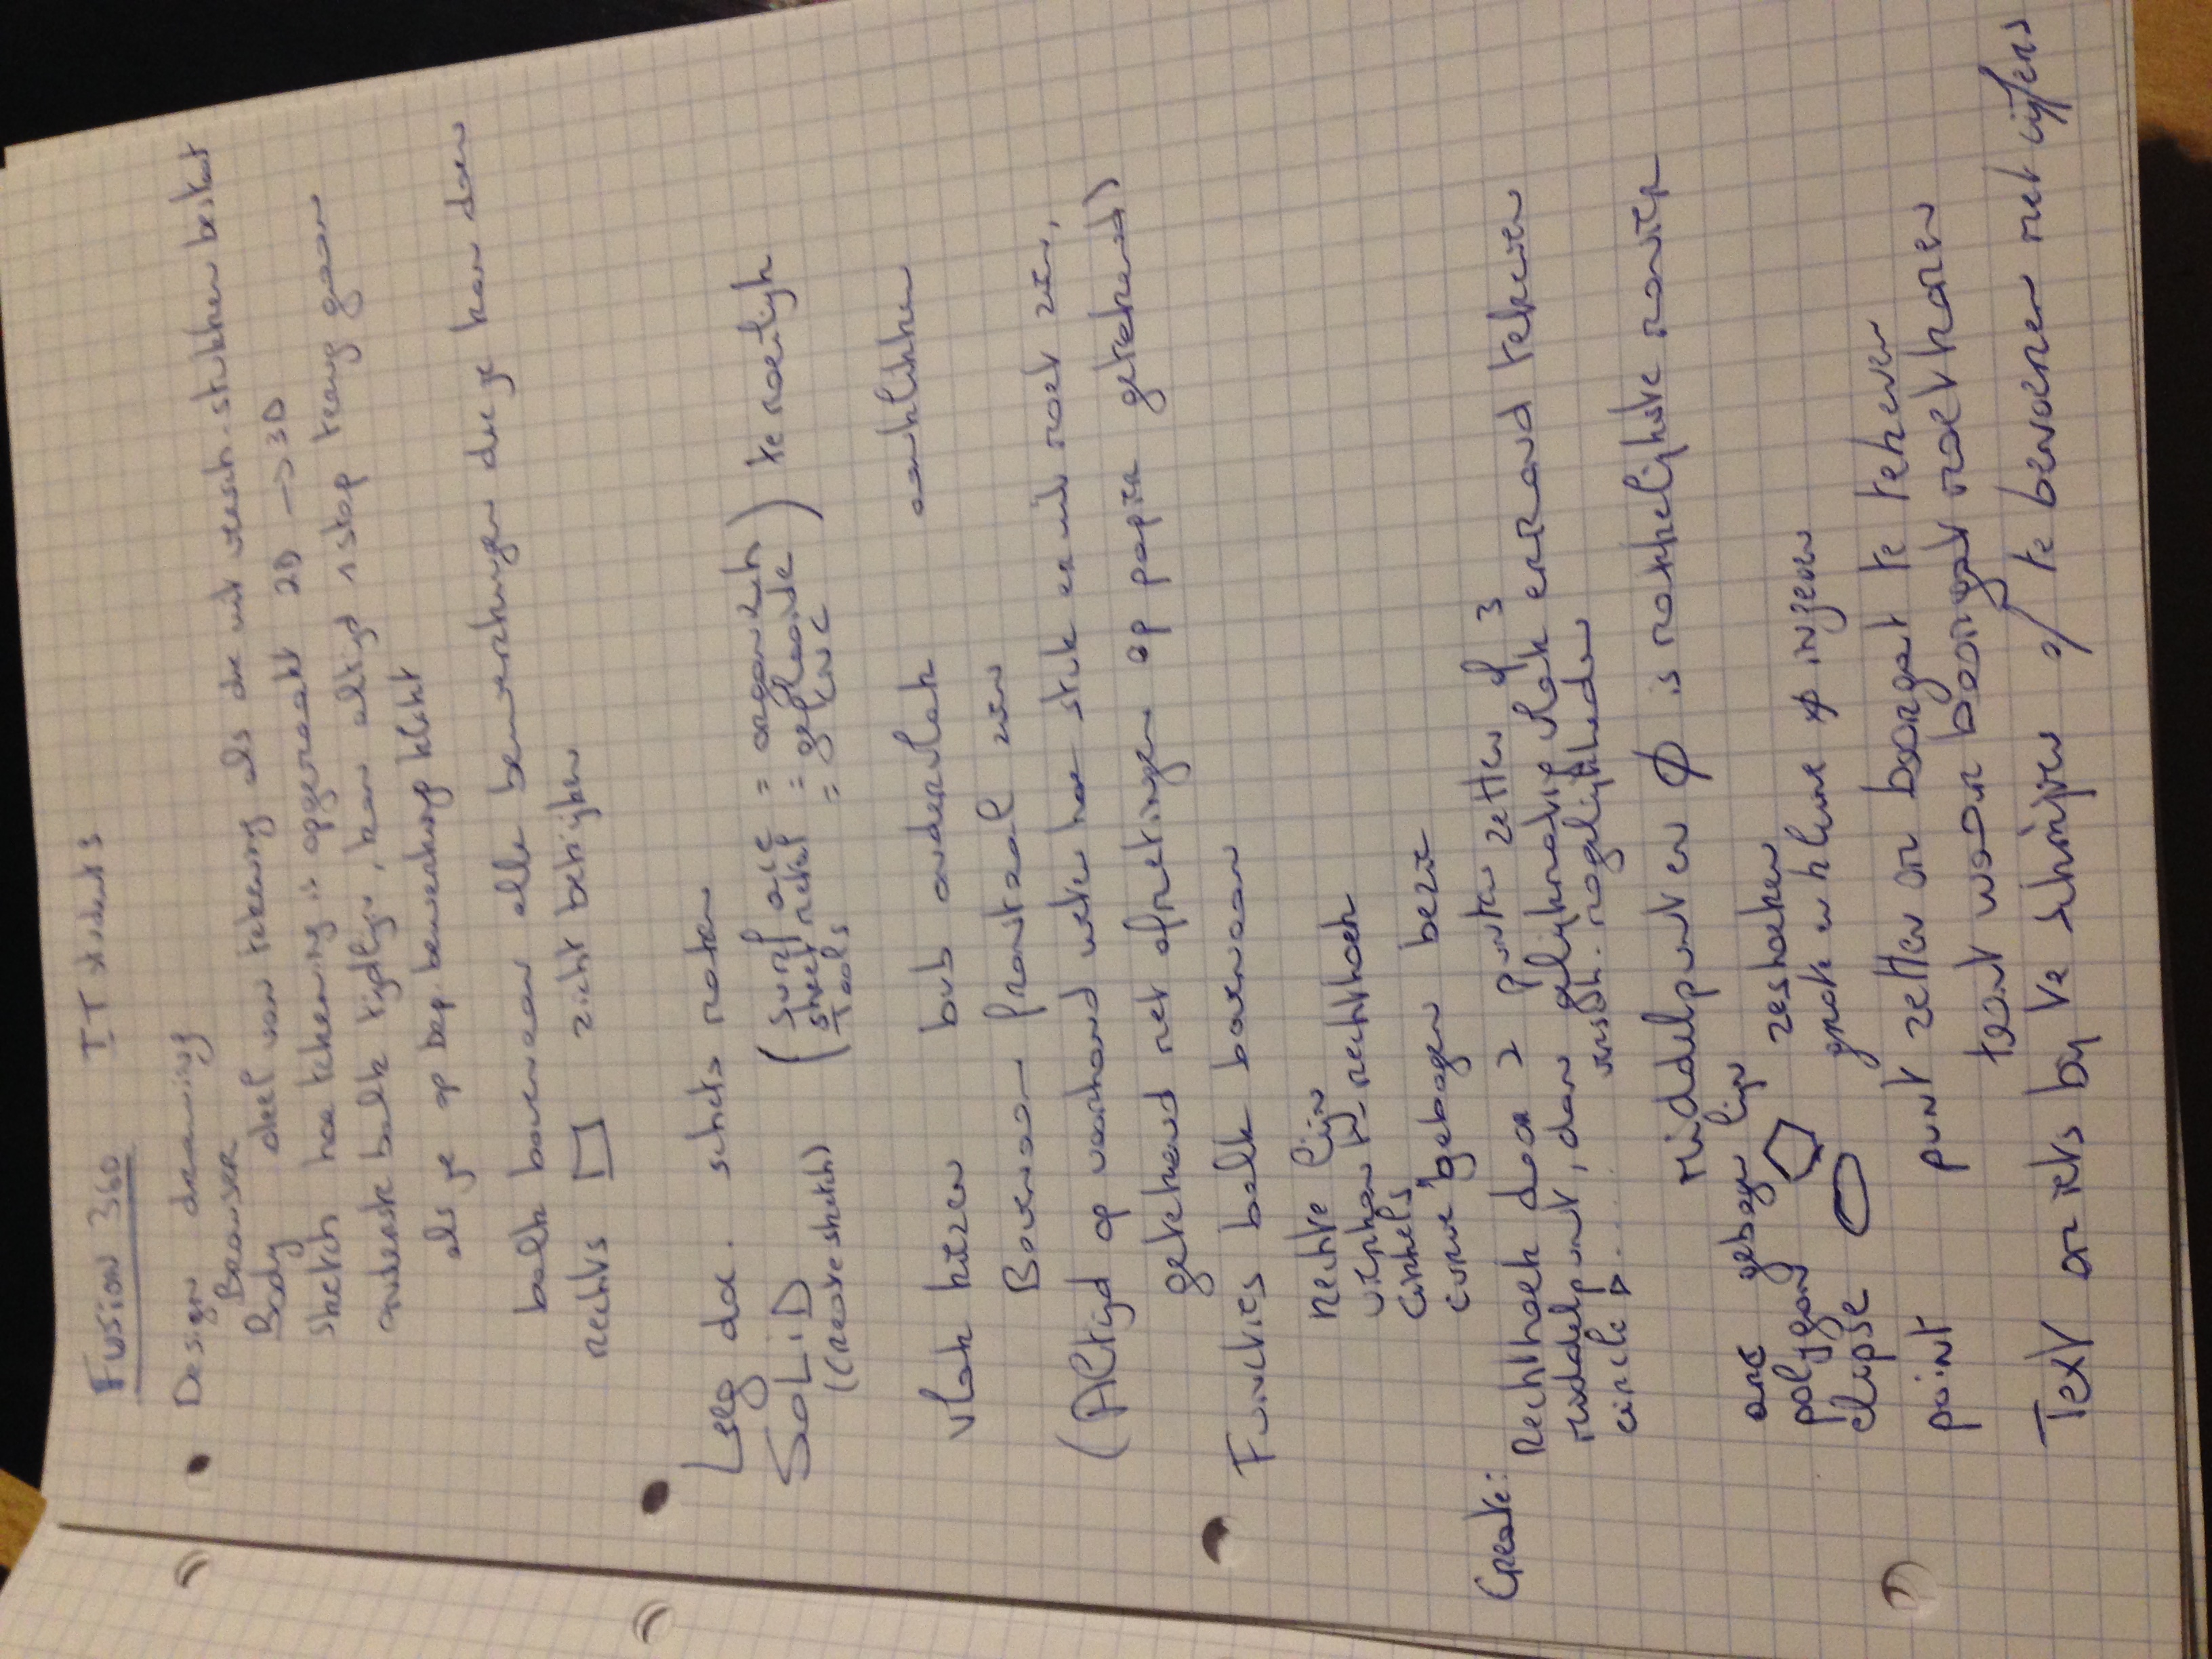 Fusion 360 IT students
Design drawing
Browser
Body deel van tekening als die uit versch. stukken bestaat
Sketch hoe tekening is opgemaakt 2D -> 3D
onderste balk tijdlijn, kan altijd 1 stap terug gaan
als je op bep. bewerking klikt
balk bovenaan alle bewerkingen die je kan doen
rechts zicht bekijken
Leeg doc. schets maken
SOLiD
(Create sketch)
(surface = organisch) te moeilijk
sheet metal = geplooide
Tools = CNC
vlak kiezen bvb ondervlak aanklikken
Bovenaan frontaal zien
(Altijd op voorhand weten hoe stuk eruit moet zien,
getekend met afmetingen op papier getekend)
Functies balk bovenaan
Rechte lijn
vierkant - rechthoek
Cirkels
curve gebogen bezie
Create:
Rechthoek door 2 punten zetten of 3
middelpunt, dan gelijkmatig vlak errond tekenen
circle ▷ ..... versch. mogelijkheden
middelpunt en ϕ is makkelijkste manier
arc gebogen lijn
polygon zeshoeken
elipse grote en kleine ϕ ingeven
point punt zetten om boorgat te tekenen
toont waar boorgat moet komen
Text om iets bij te schrijven of te benoemen met cijfers